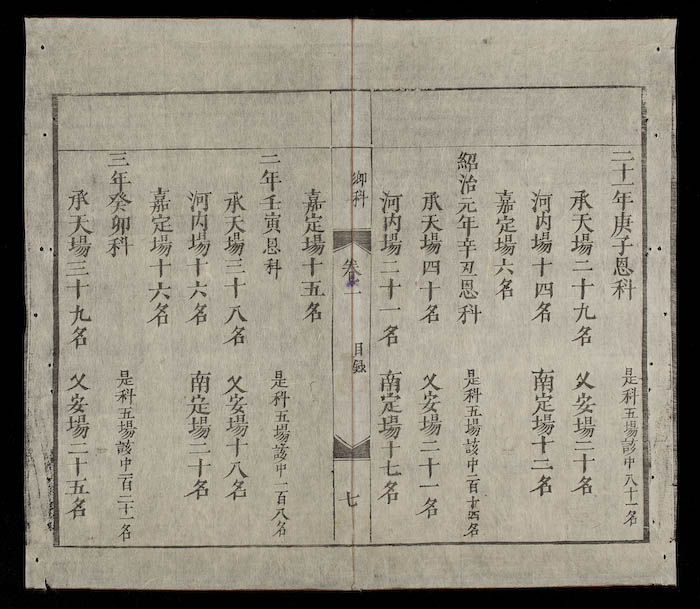 二十一年庚子恩科 是科五場該中八十一名
承天場二十九名 乂安場二十名
河内場十四名 南定場十二名
嘉定場六名
紹治元年辛丑恩科 是科五場該中一百十四名
承天場四十名 乂安場二十一名
河内場二十一名 南定場十七名
鄉科 卷一 目錄 七
嘉定場十五名
二年壬寅恩科 是科五場該中一百八名
承天場三十八名 乂安場十八名
河内場十六名 南定場二十名
嘉定場十六名
三年癸卯科 是科五場該中一百二十一名
承天場三十九名 乂安場二十五名